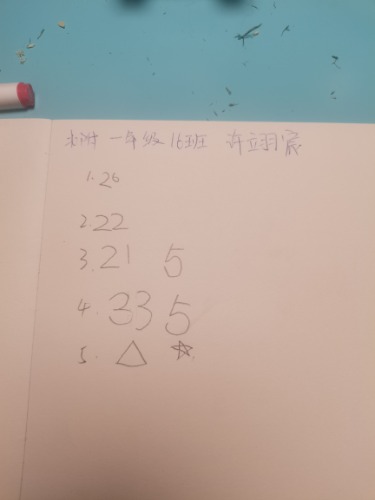 北附 一年级 16班 许翊宸
1.26
2.22
3.21 5
4.33 5
5. △ ☆